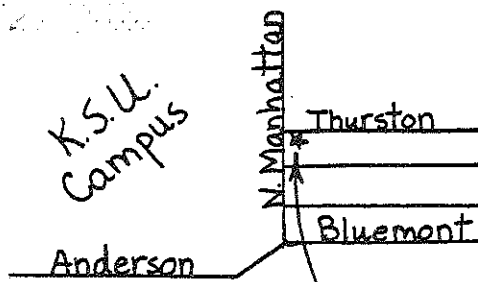 K.S.U.
Campus
N. Manhattan
Thurston
Bluemont
Anderson